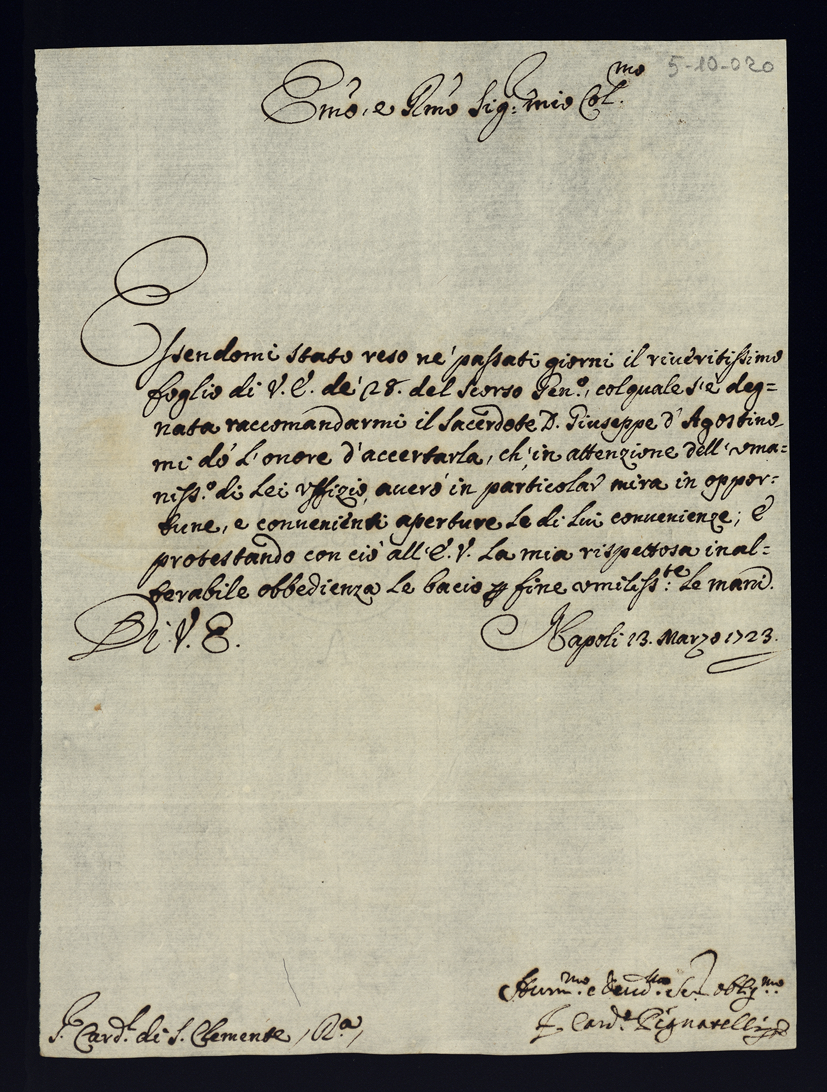 5-10-020
Emo, e Rmo Sig: mio Col.mo
Essendomi stato reso ne' passati giorni il riveritissimo
foglio di V. E. de' 28. del scorso Gen.o, col quale s'è deg=
nata raccomandarmi il Sacerdote D. Giuseppe d'Agostino
mi dò l'onore d'accertarla, ch' in attenzione dell' uma=
niss.o di Lei Uffizio, averò in particolar mira in oppor=
tune, e convenienti aperture le di lui convenienze; E
protestando con ciò all' E. V. la mia rispettosa inal=
terabile obbedienza le bacio per fine umiliss:te le mani.
Di V. E.
Napoli 13. Marzo 1723.
Hum.mo e obblig.mo
S. Card.l di S. Clemente, Ra,
F. Card.e Pignatelli